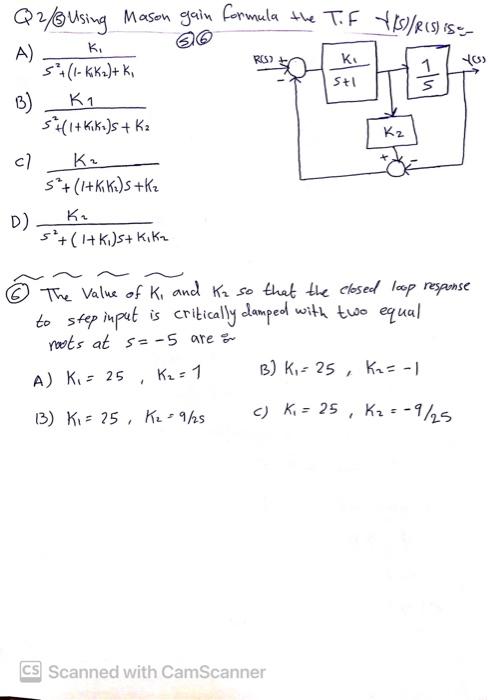 Q2/⑤ Using Mason gain formula the T.F Y(S)/R(S) is:-
⑤⑥
A) K₁ / S²+(1-K₁K₂)+K₁
B) K1 / S²+(1+K₁K₂)S+K₂
C) K₂ / S²+(1+K₁K₂)S+K₂
D) K₂ / S²+(1+K₁)S+K₁K₂
R(S) + -
K₁ / S+1
1 / S
Y(S)
K₂
+ -
⑥ The Value of K₁ and K₂ so that the closed loop response
to step input is critically damped with two equal
roots at s=-5 are :-
A) K₁ = 25 , K₂ = 1
B) K₁ = 25 , K₂ = -1
B) K₁ = 25 , K₂ = 9/25
C) K₁ = 25 , K₂ = -9/25
CS Scanned with CamScanner